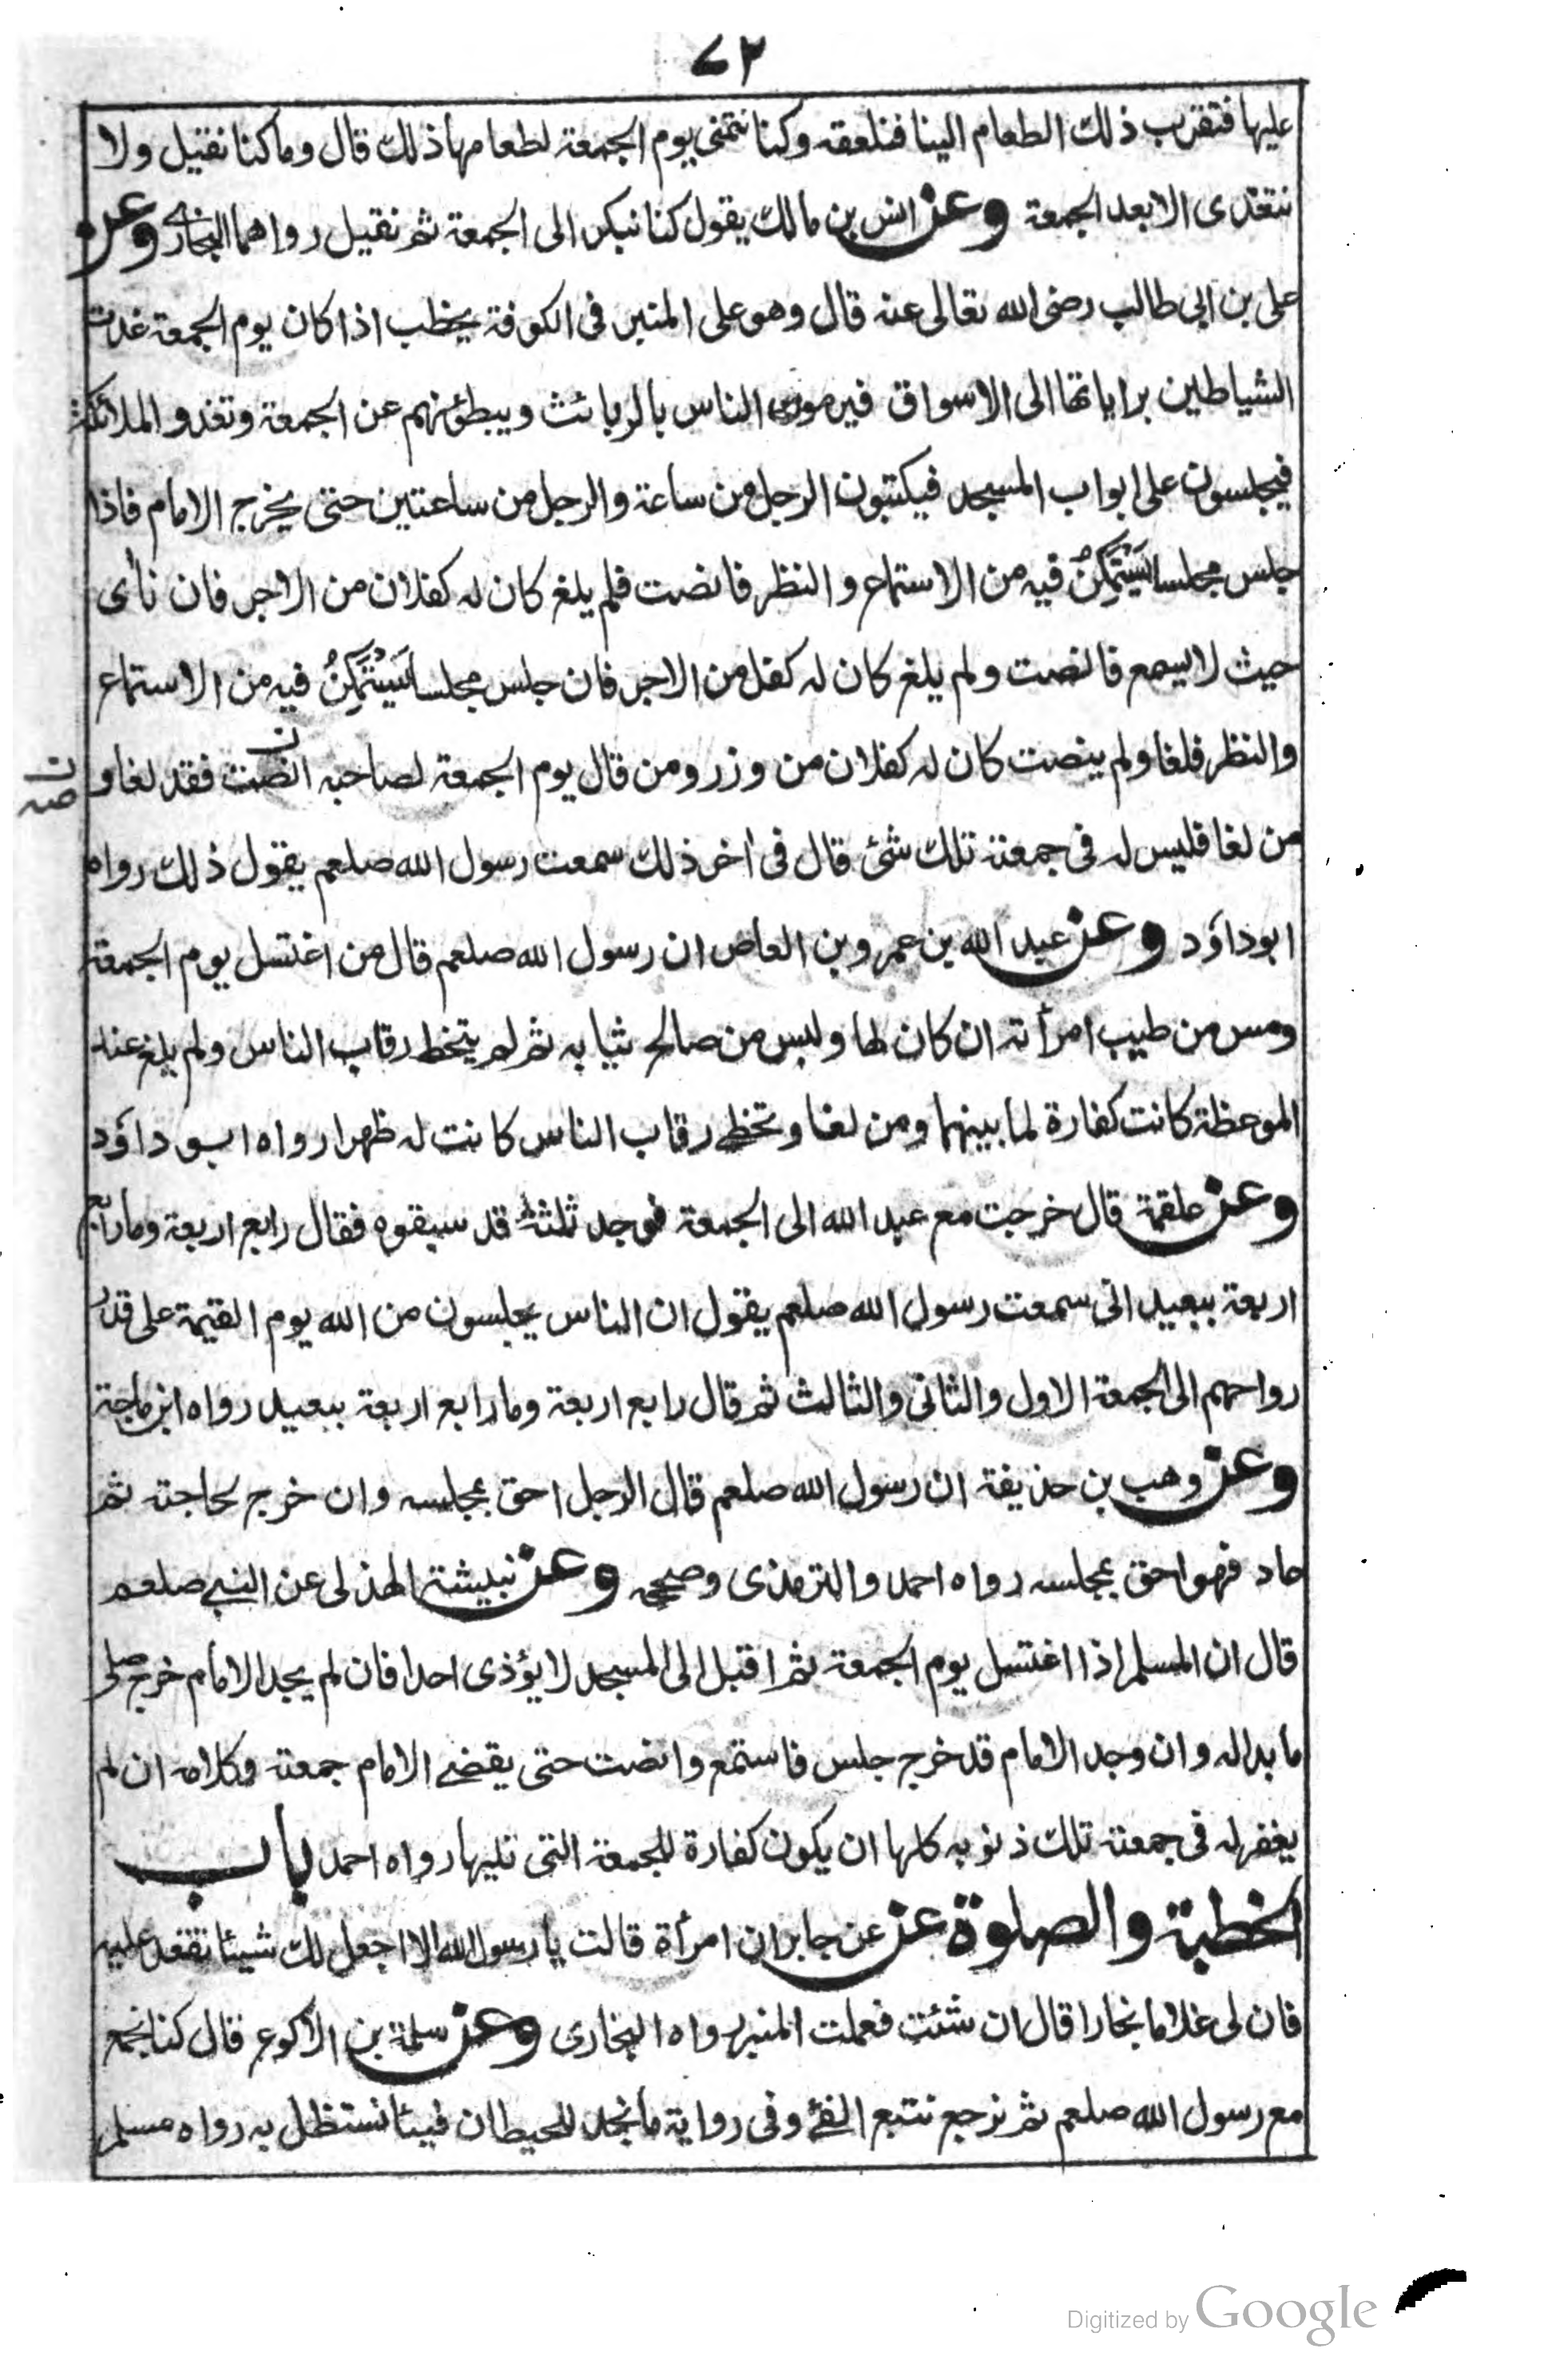 ٧٢
عليها فتقرب ذلك الطعام الينا فنلعقه وكنا نتمنى يوم الجمعة لطعامها ذلك قال وما كنا نقيل ولا
نتغدى الا بعد الجمعة وعن انس بن مالك يقول كنا نبكر الى الجمعة ثم نقيل رواهما البخارى وعن
على بن ابى طالب رضى الله تعالى عنه قال وهو على المنبر فى الكوفة يخطب اذا كان يوم الجمعة غدت
الشياطين براياتها الى الاسواق فيرمون الناس بالربائث ويبطؤنهم عن الجمعة وتغدو الملائكة
فيجلسون على ابواب المسجد فيكتبون الرجل من ساعة والرجل من ساعتين حتى يخرج الامام فاذا
جلس مجلسا يَسْتَمْكِنُ فيه من الاستماع والنظر فانصت فلم يلغ كان له كفلان من الاجر فان نأى
حيث لا يسمع فانصت ولم يلغ كان له كفل من الاجر فان جلس مجلسا يَسْتَمْكِنُ فيه من الاستماع
والنظر فلغا ولم ينصت كان له كفلان من وزر ومن قال يوم الجمعة لصاحبه انصت فقد لغا و
ن صه
من لغا فليس له فى جمعته تلك شئ قال فى اخر ذلك سمعت رسول الله صلعم يقول ذلك رواه
ابوداؤد وعن عبد الله بن عمرو بن العاص ان رسول الله صلعم قال من اغتسل يوم الجمعة
ومس من طيب امرأته ان كان لها ولبس من صالح ثيابه ثم لم يتخط رقاب الناس ولم يلغ عند
الموعظة كانت كفارة لما بينهما ومن لغا وتخطى رقاب الناس كانت له ظهرا رواه ابو داؤد
وعن علقمة قال خرجت مع عبد الله الى الجمعة فوجد ثلثة قد سبقوه فقال رابع اربعة وما رابع
اربعة ببعيد انى سمعت رسول الله صلعم يقول ان الناس يجلسون من الله يوم القيمة على قدر
رواحهم الى الجمعة الاول والثانى والثالث ثم قال رابع اربعة وما رابع اربعة ببعيد رواه ابن ماجة
وعن وهب بن حذيفة ان رسول الله صلعم قال الرجل احق بمجلسه وان خرج لحاجته ثم
عاد فهو احق بمجلسه رواه احمد والترمذى وصححه وعن نبيشة الهذلى عن النبى صلعم
قال ان المسلم اذا اغتسل يوم الجمعة ثم اقبل الى المسجد لا يؤذى احدا فان لم يجد الامام خرج صلى
ما بدا له وان وجد الامام قد خرج جلس فاستمع وانصت حتى يقضى الامام جمعته وكلامه ان لم
يغفر له فى جمعته تلك ذنوبه كلها ان يكون كفارة للجمعة التى تليها رواه احمد باب
الخطبة والصلوة عن عن جابر ان امرأة قالت يا رسول الله الا اجعل لك شيئا تقعد عليه
فان لى غلاما نجارا قال ان شئت فعملت المنبر رواه البخارى وعن سلمة بن الاكوع قال كنا نجمع
مع رسول الله صلعم ثم نرجع نتتبع الفئ وفى رواية ما نجد للحيطان فيئا نستظل به رواه مسلم
Digitized by Google